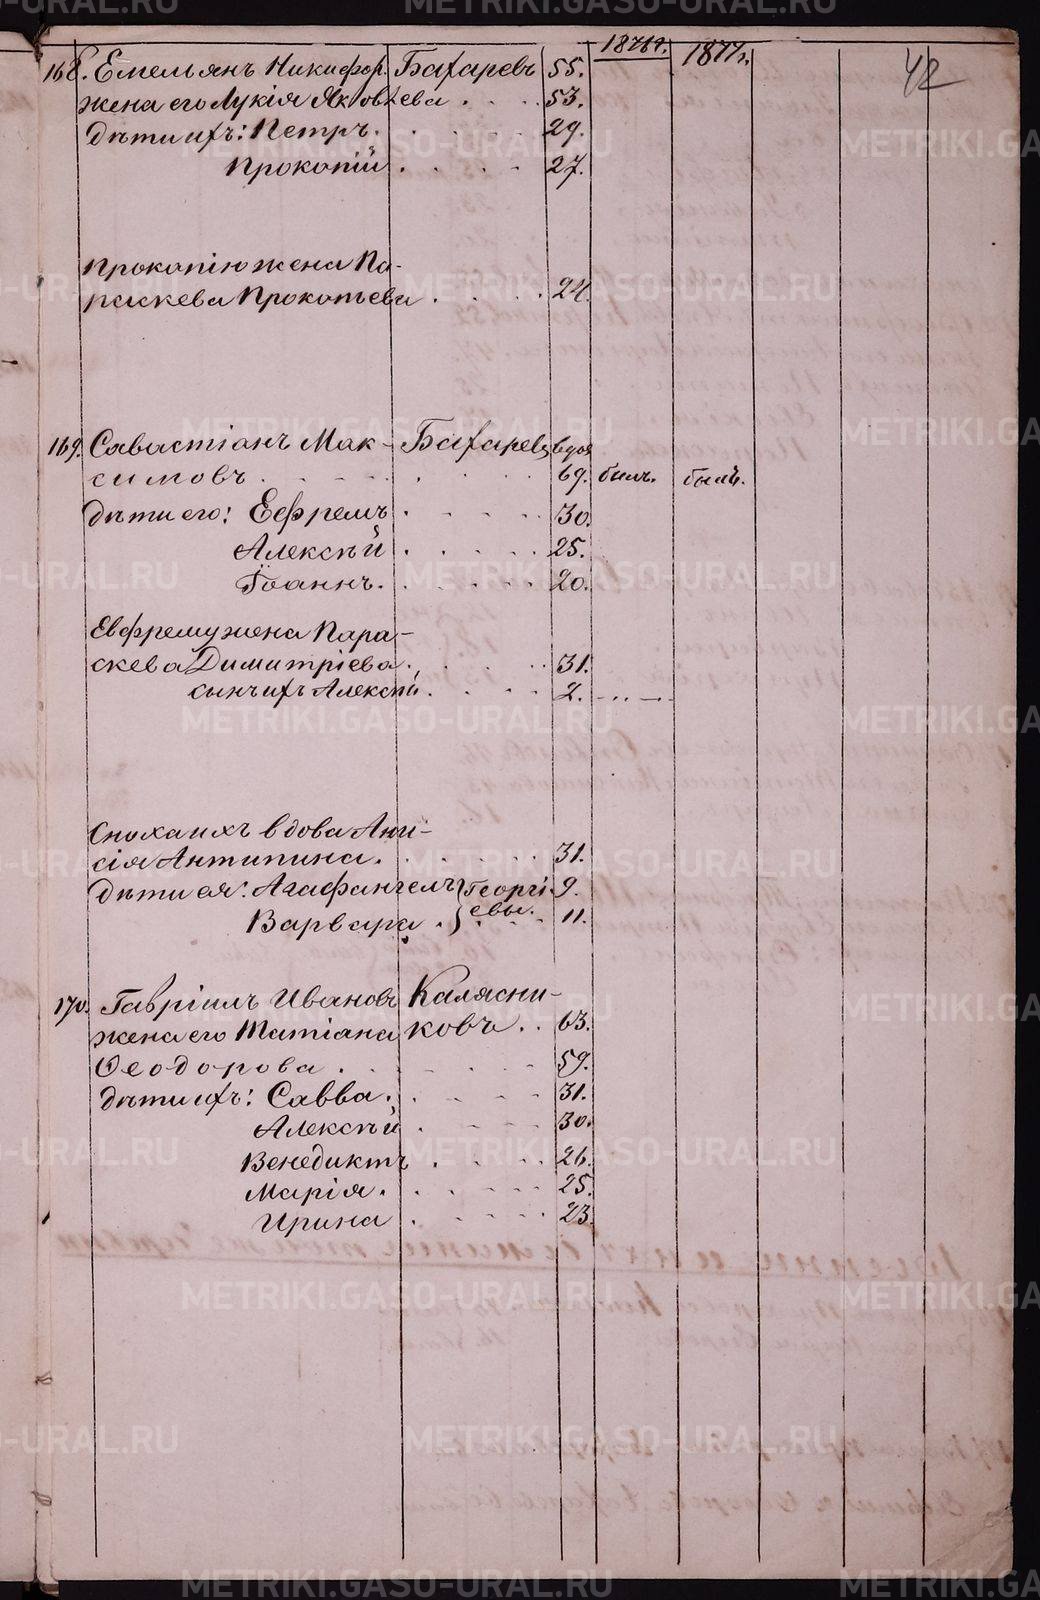 1876г. 1877г. 42
168. Емельянъ Никифор. Бахаревъ 55.
жена его Лукія Яковлева . . . 53.
Дѣти ихъ: Петръ. . . . . 29.
Прокопій . . . . 27.
Прокопію жена Па-
раскева Прокопьева . . . . 24.
169. Савастіанъ Мак- Бахаревъ вдов
симовъ . . . . . 69. былъ. былъ.
дѣти его: Ефремъ . . . . 30.
Алексѣй . . . . 25.
Іоаннъ. . . . . 20.
Евфрему жена Пара-
скева Димитріева . . . . 31.
сынъ ихъ Алексѣй . . . . 2. -..-.
Сноха ихъ вдова Ани-
сія Антипина. . . . . 31.
дѣти ея: Агафангелъ } Георгі- 9.
Варвара . } евы. . . 11.
170. Гавріилъ Ивановъ Калясни-
жена его Татіана ковъ . . 63.
Ѳеодорова . . . . . 59.
дѣти ихъ: Савва. . . . . 31.
Алексѣй . . . . 30.
Венедиктъ . . . . 26.
Марія. . . . . 25.
Ирина . . . . 23.
METRIKI.GASO-URAL.RU